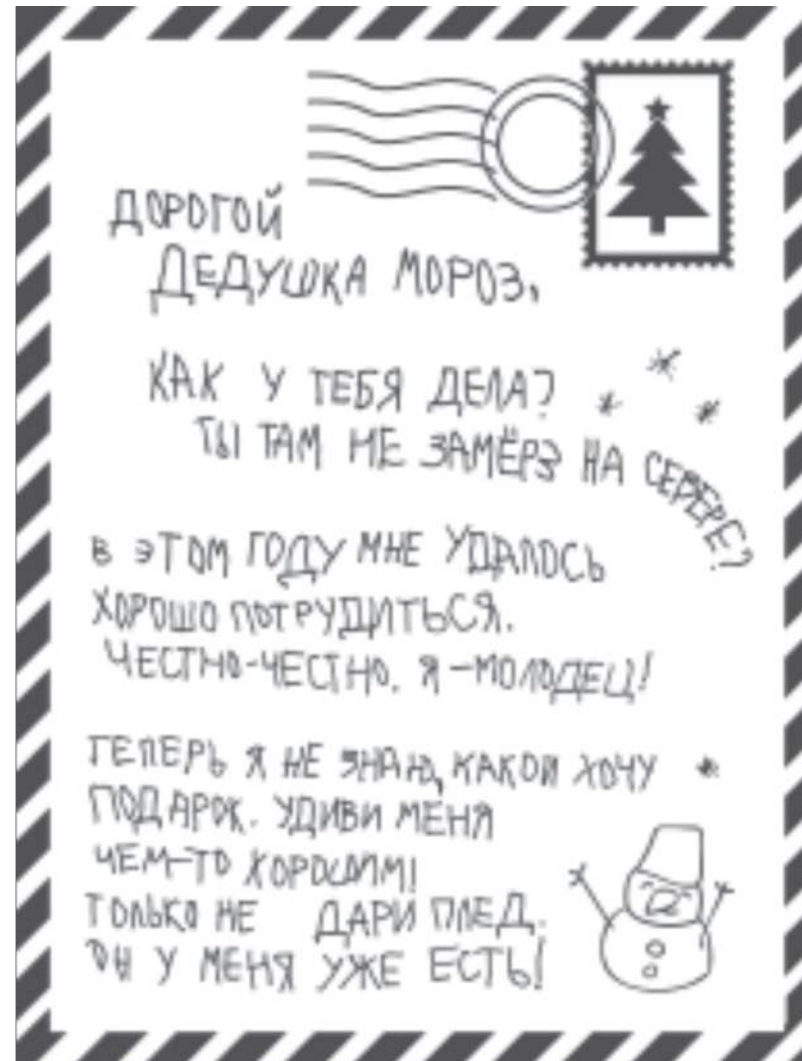 ДОРОГОЙ
ДЕДУШКА МОРОЗ,
КАК У ТЕБЯ ДЕЛА?
ТЫ ТАМ НЕ ЗАМЁРЗ НА СЕВЕРЕ?
В ЭТОМ ГОДУ МНЕ УДАЛОСЬ
ХОРОШО ПОТРУДИТЬСЯ.
ЧЕСТНО-ЧЕСТНО. Я – МОЛОДЕЦ!
ТЕПЕРЬ Я НЕ ЗНАЮ, КАКОЙ ХОЧУ
ПОДАРОК. УДИВИ МЕНЯ
ЧЕМ-ТО ХОРОШИМ!
ТОЛЬКО НЕ ДАРИ ПЛЕД.
ОН У МЕНЯ УЖЕ ЕСТЬ!